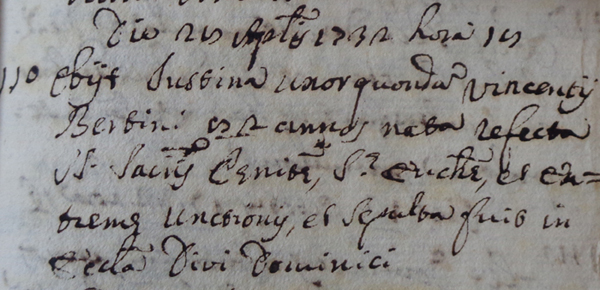 Die 25 Aplis 1732 hora
110 Obijt Iustina uxor quonda Vincentij
Bertini 72 annos nata refecta
SS. Sacris Penite, et Ex=
treme Unctionis, et sepulta fuit in
Eccla Divi Dominici